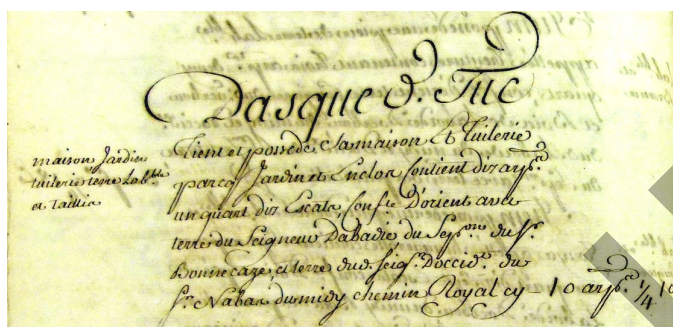 Dasque d. Tuc
maison Jardin
tuilerie terre Lab.ble
et Taillis
Tient et possede sa maison Et Tuilerie
parcq Jardin et Enclos Contient dix arp.
un quart dix Escats, Conf.te D'orient avec
terre du Seigneur Dabadie du Sep. du Sr.
Bonnecaze, et terre dud. seigr. D'occid. du
Sr. Nabas, du midy chemin Royal cy 10 arp. 1/4 10